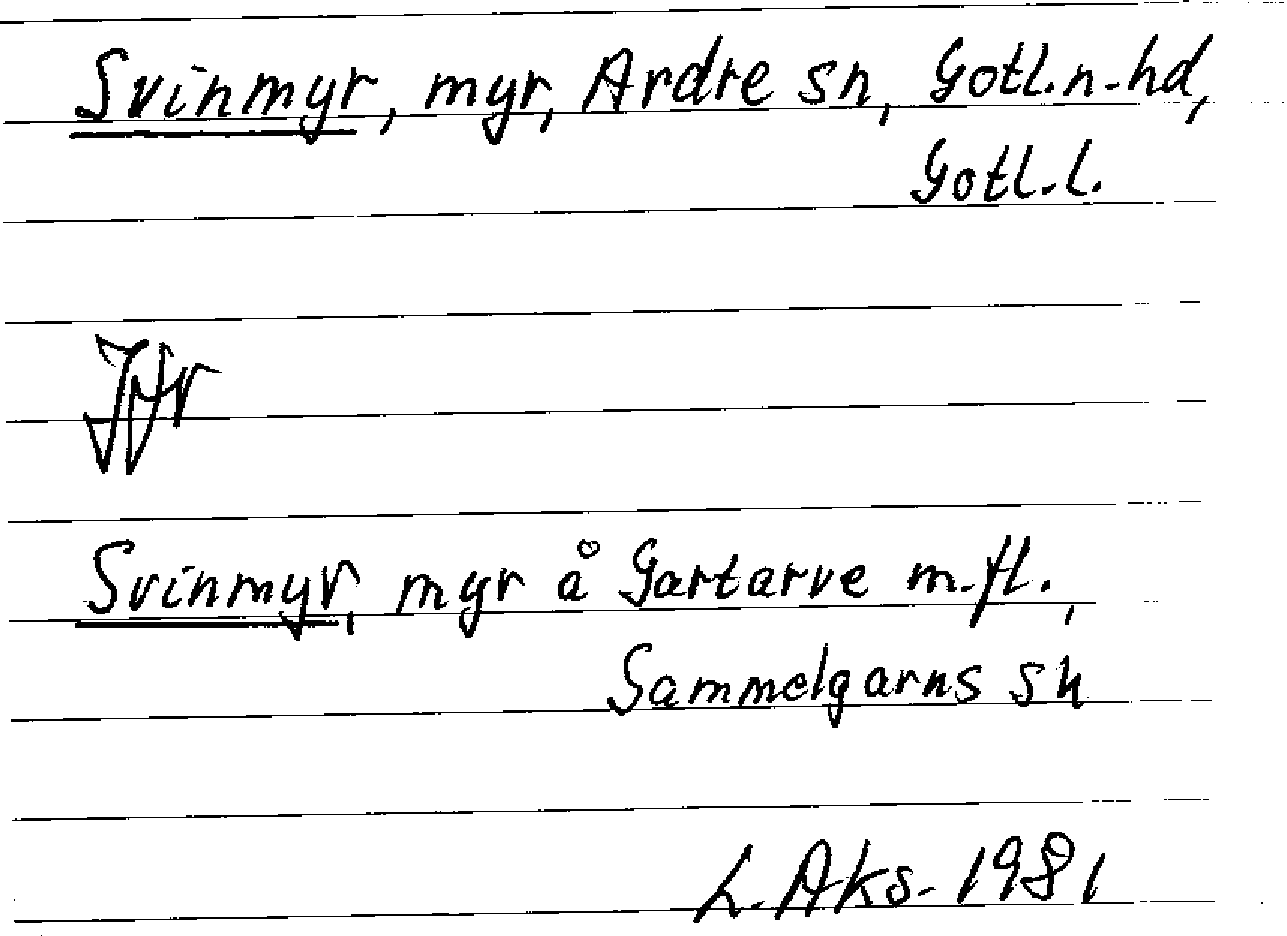 Svinmyr, myr, Ardre sn, Gotl.n.hd,
Gotl.l.
Jfr
Svinmyr, myr å Gartarve m.fl.,
Gammelgarns sn
L. Aks. 1981